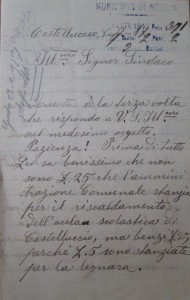 MUNICIPIO DI
Castelluccio,
Ill.mo Signor Sindaco
Questa è la terza volta
che rispondo a V. S. Ill.ma
sul medesimo oggetto.
Pazienza! Prima di tutto
Ella sa benissimo che non
sono £. 25 che l'ammini
strazione Comunale stanzia
per il riscaldamento
dell'aula scolastica di
Castelluccio, ma bensì £.
perché £. 5 sono stanziate
per la legnara.